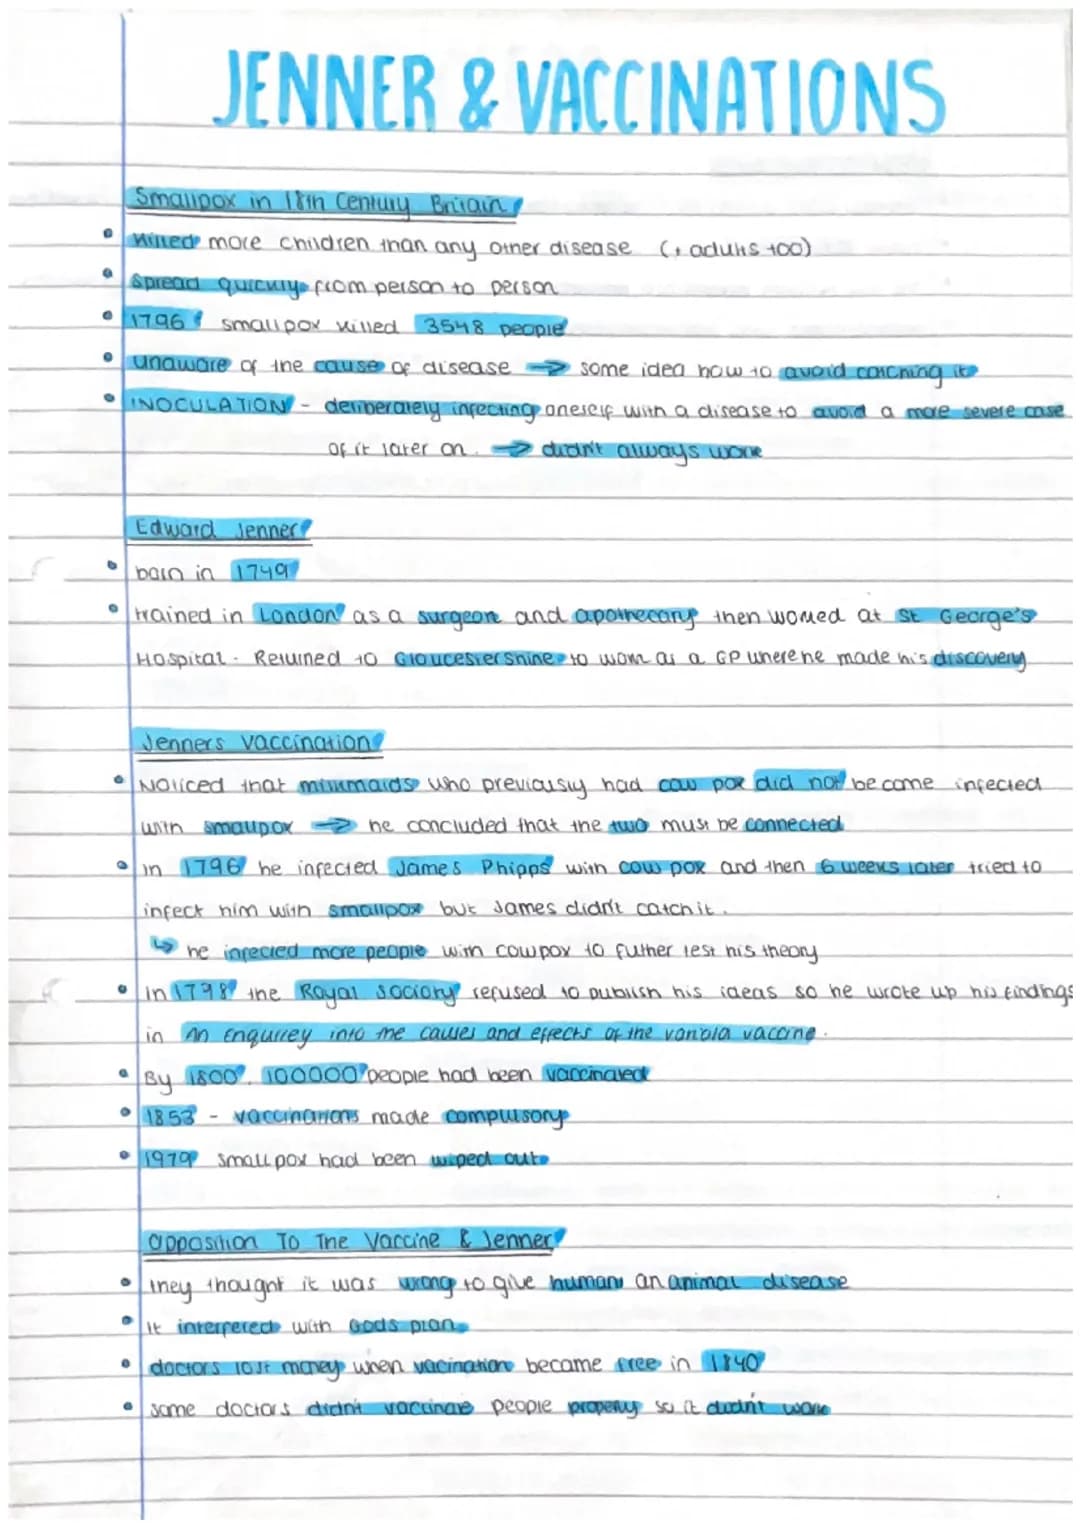 JENNER & VACCINATIONS
Smallpox in 18th Century Britain
killed more children than any other disease (+ adults too)
spread quickly from person to person
1796 smallpox killed 3548 people
unaware of the cause of disease → some idea how to avoid catching it
INOCULATION - deliberately infecting oneself with a disease to avoid a more severe case
of it later on. → didn't always work
Edward Jenner
born in 1749
trained in London as a surgeon and apothecary then worked at St George's
Hospital. Returned to Gloucestershire to work as a GP where he made his discovery
Jenners vaccination
Noticed that milkmaids who previously had cow pox did not become infected
with smallpox → he concluded that the two must be connected
in 1796 he infected James Phipps with cow pox and then 6 weeks later tried to
infect him with smallpox but James didn't catch it.
↳ he infected more people with cowpox to futher test his theory
in 1798 the Royal Sociory refused to publish his ideas so he wrote up his findings
in An Enqurrey into the causes and effects of the variola vaccine.
By 1800, 100000 people had been vaccinated
1853 - vaccinations made compulsory
1979 smallpox had been wiped out
Opposition To The Vaccine & Jenner
they thought it was wrong to give humans an animal disease
it interfered with Gods plan
doctors lost money when vacination became free in 1840
some doctors didn't vaccinate people properly so it didn't work